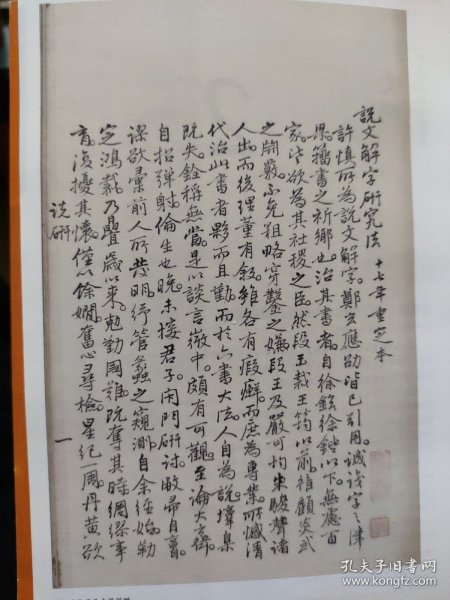 說文解字研究法 十七年重定本
許慎所為說文解字。鄭玄應劭皆已引用。誠識字之津
梁。籀書之祈鄉也。治其書者。自徐鉉徐鍇以下。無慮百
家。皆欲為其社稷之臣。然段玉裁王筠以前。雖顧炎武
之閎覈。不免粗略穿鑿之嫌。段王及嚴可均朱駿聲諸
人出。而後理董有敘。雖各有瑕癬。而庶為專業。所憾清
代治此書者夥。而且勤。而於六書大法。人自為說。墇臬
既失。銓稱無當。是以談言微中。頗有可觀。至論大律。
自招彈射。倫生也晚。未接君子。閉門研討。敝帚自享。
謬欲彙前人所發明。紓管蠡之窺測。自余經始。勒
定鴻裁。乃疊歲以來。勉勤國難。既奪其時。綢繆事
育。復擾其懷。僅以餘嫺。奮心尋檢。星紀一周。丹黃欲
說研
一
孔夫子旧书网